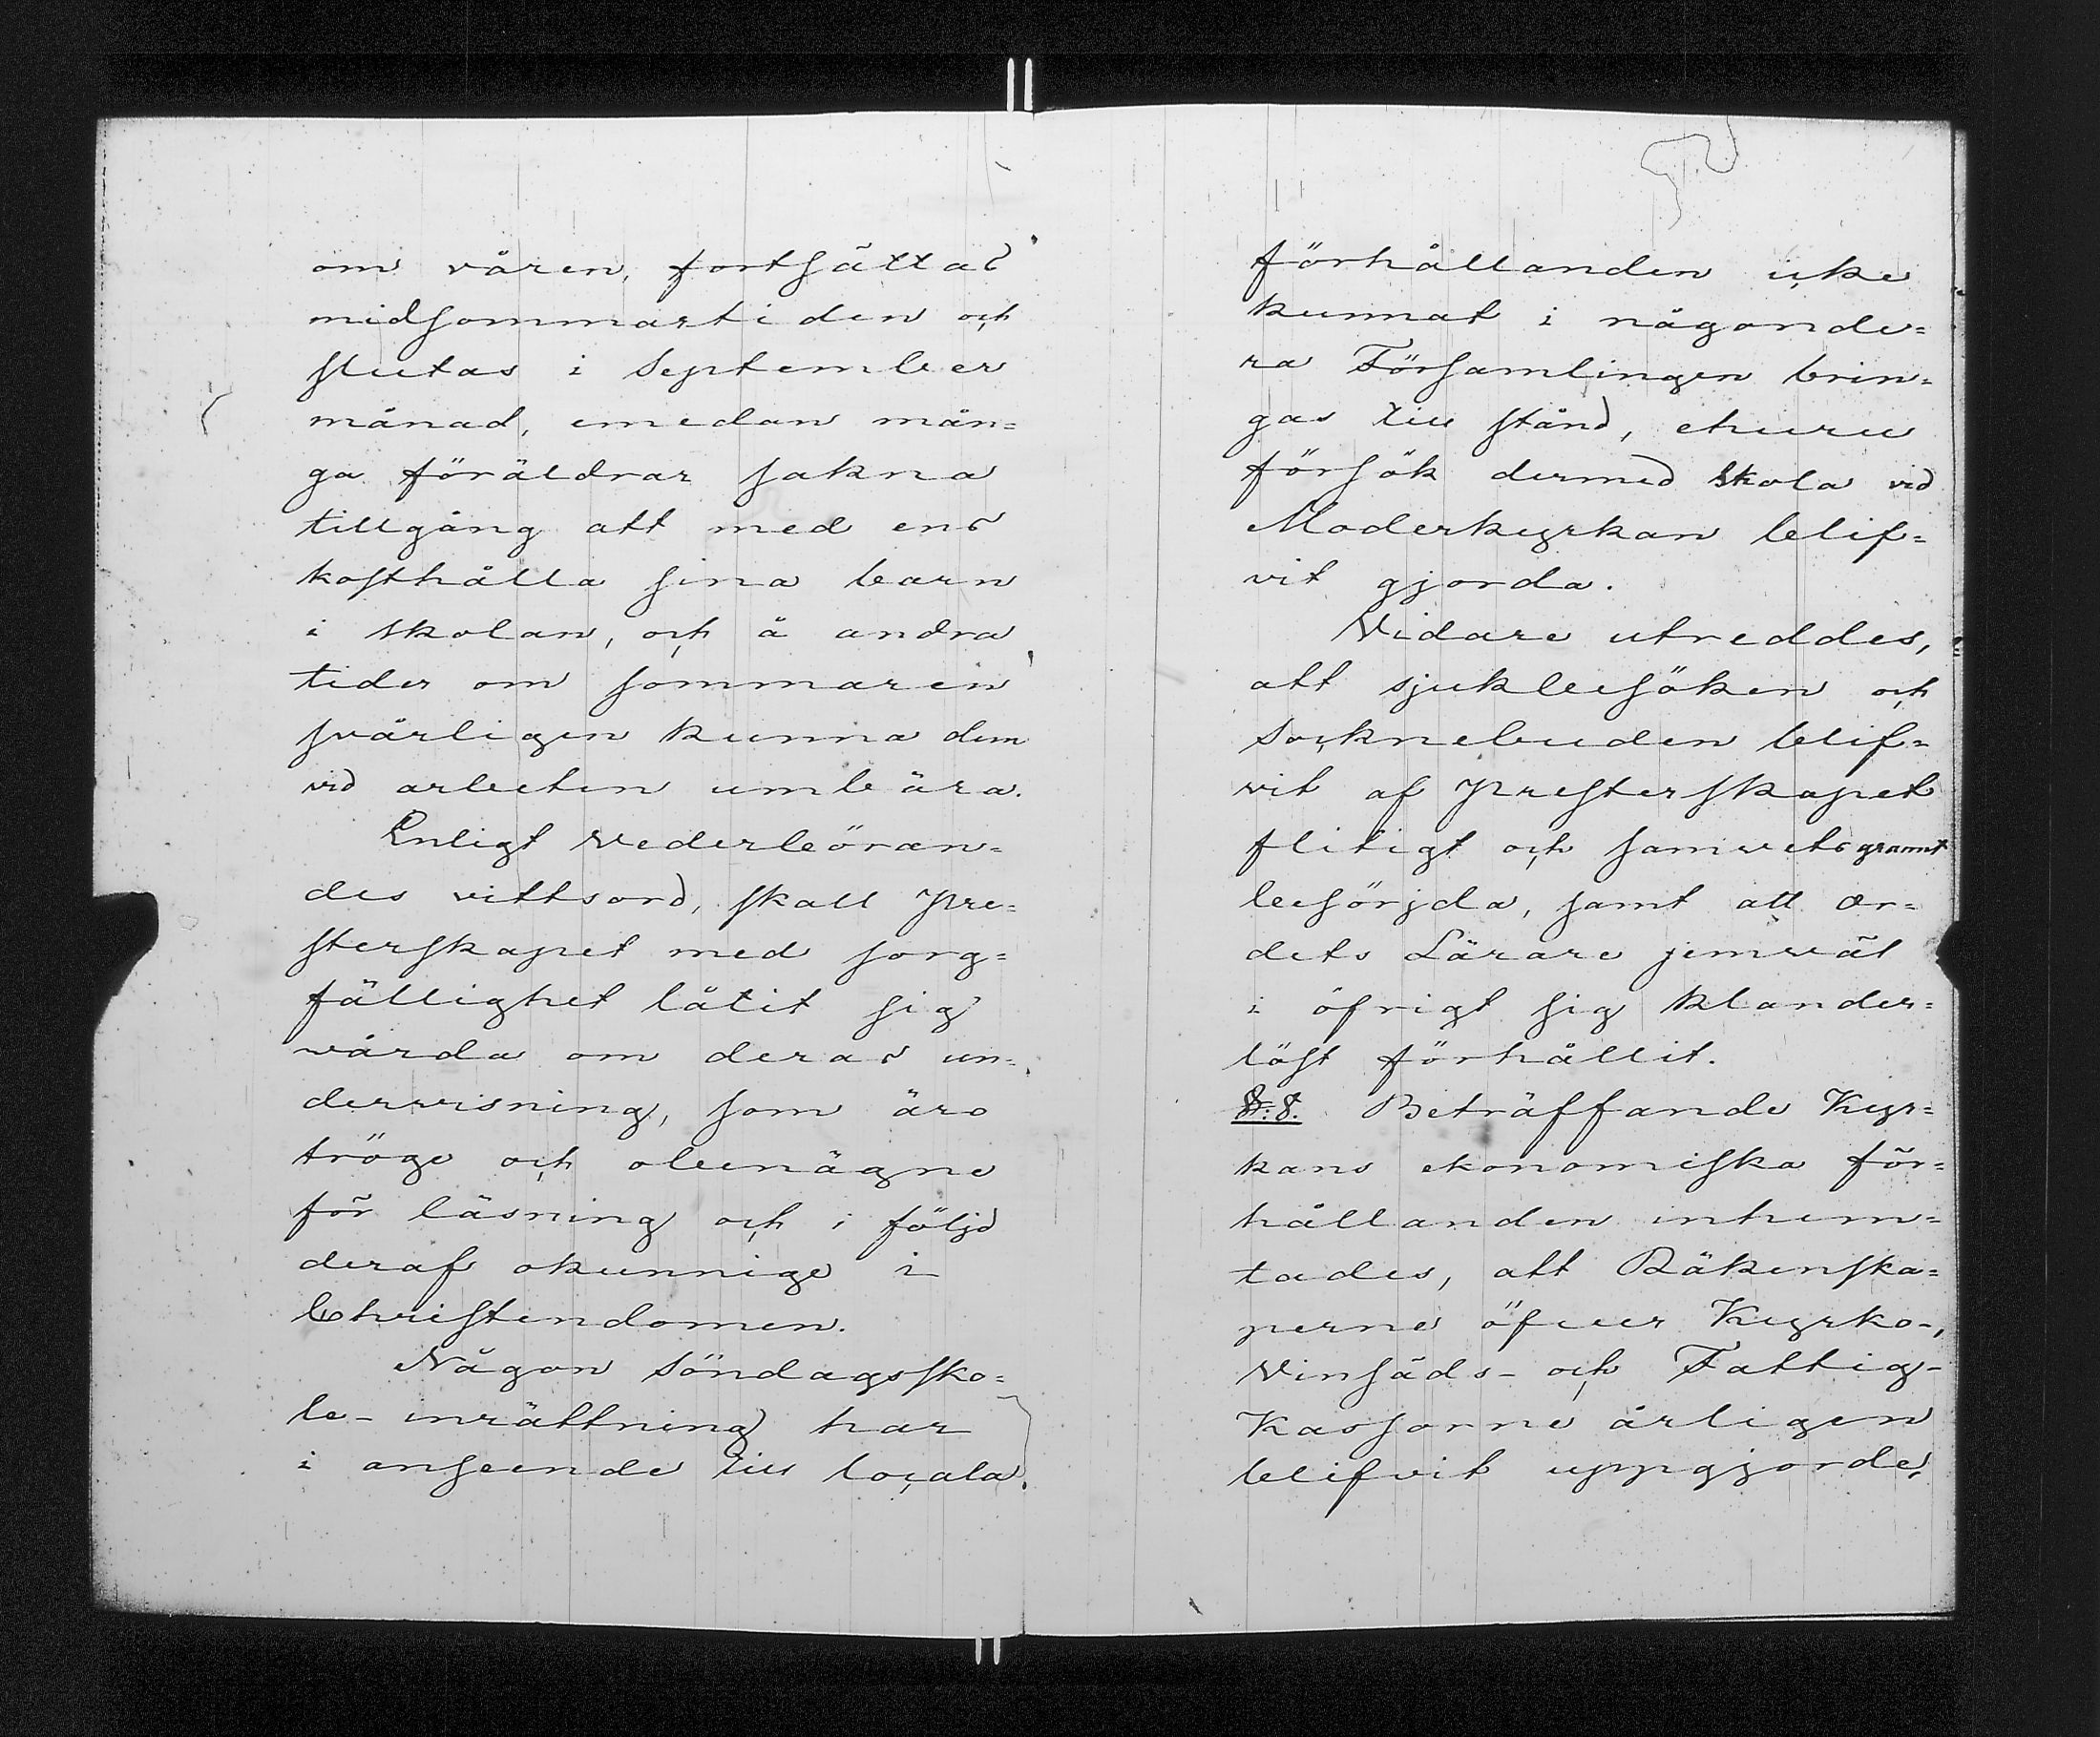 om våren, fortsättas
midsommartiden och
slutas i September
månad, emedan mån=
ga föräldrar sakna
tillgång att med ens
kosthålla sina barn
i skolan, och å andra
tider om sommaren
svårligen kunna dem
vid arbeten umbära.
Enligt vederböran=
des vittsord, skall Pre=
sterskapet med sorg=
fällighet låtit sig
wårda om deras un=
derwisning, som äro
tröge och obenägne
för läsning och i följd
deraf okunnige i
Christendomen.
Någon Söndagssko=
le-inrättning har
i anseende till locala
förhållanden icke
kunnat i någonde=
ra Församlingen brin=
gas till stånd, ehuru
försök dermed skola vid
Moderkyrkan blif=
vit gjorda.
Vidare utreddes,
att sjukbesöken och
Socknebuden blif=
vit af Presterskapet
flitigt och samvetsgrant
besörjda, samt att Or=
dets Lärare jemwäl
i öfrigt sig klander=
löst förhållit.
§. 8. Beträffande Kyr=
kans ekonomiska för=
hållanden inhem=
tades, att Räkenska=
perne öfver Kyrko-,
Vinsäds- och Fattig-
Kassorne årligen
blifvit uppgjorde,